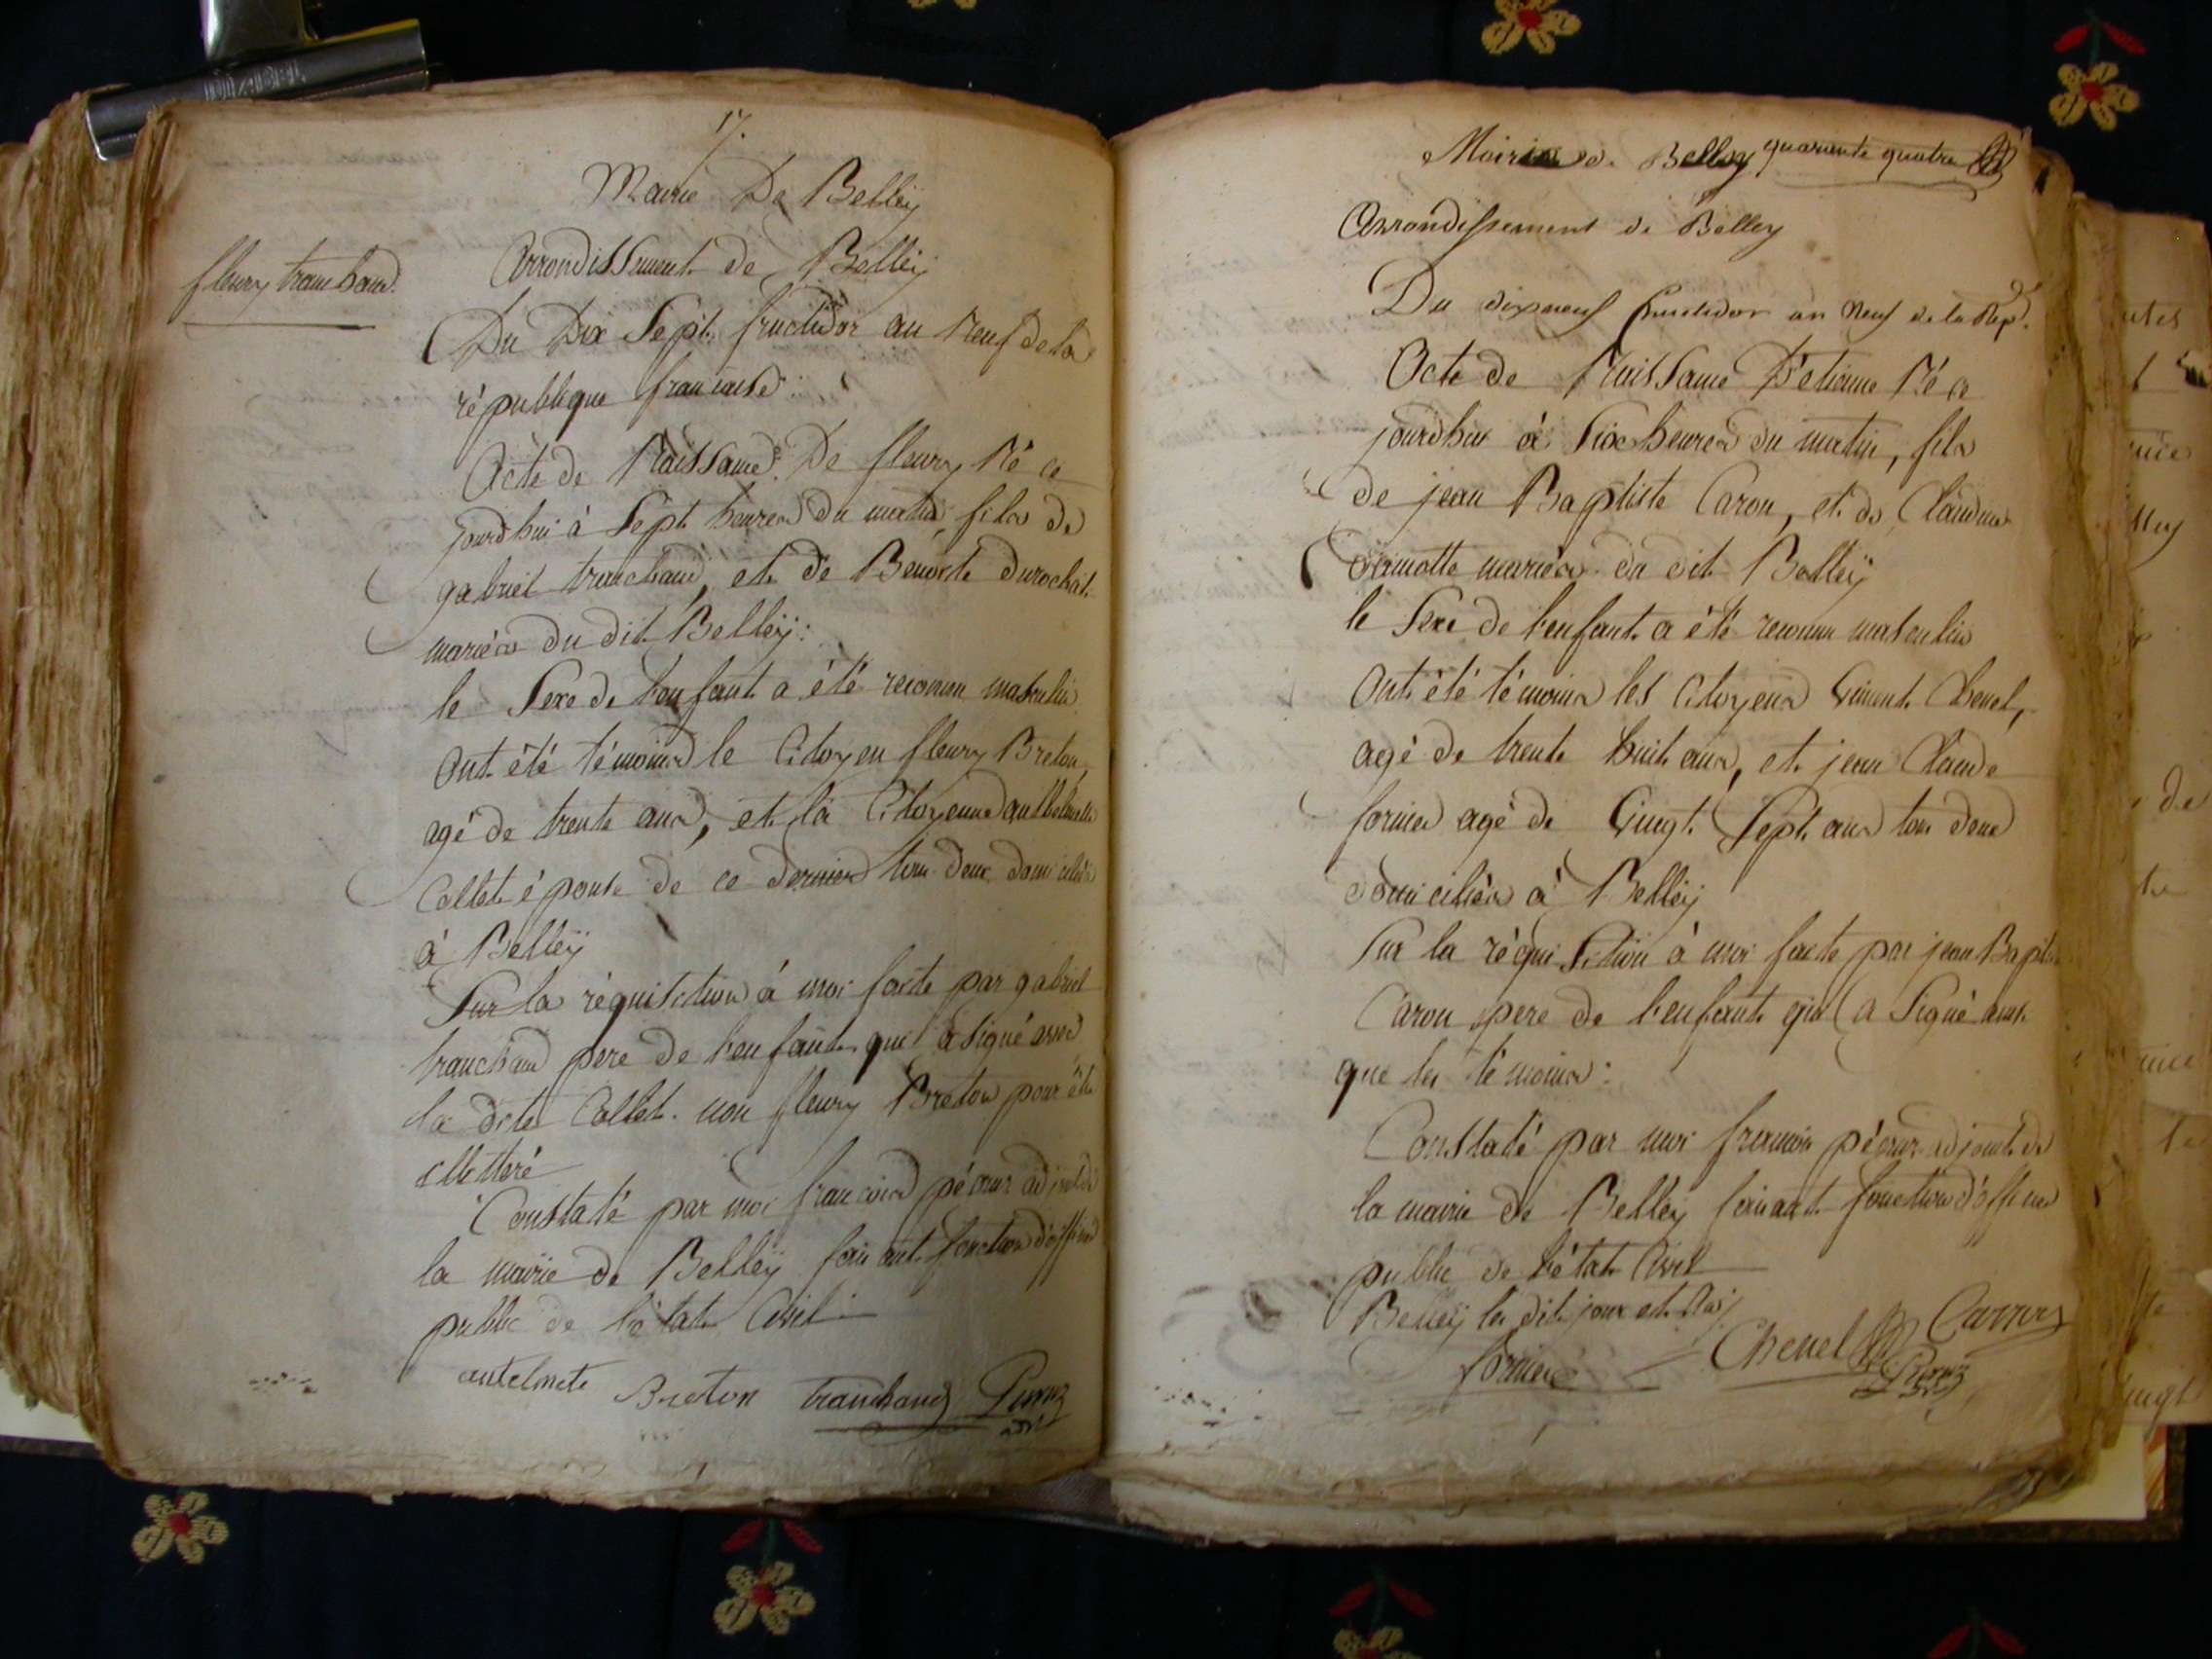 17.
Mairie De Belleÿ
fleury tranchand.
Arrondissement de Belleÿ
Du Dix Sept fructidor an Neuf de la
république francaise
Acte de Naissance De fleury Né ce
jourdhui à Sept heures du matin, fils de
gabriel tranchand, et de Benoite durochat
mariés du dit Belleÿ:
le Sexe de l'enfant a été reconnu masculin
Ont été témoins le Citoyen fleury Breton,
agé de trente ans, et la Citoyenne anthelmette
Collet épouse de ce dernier tous deux domiciliés
à Belleÿ
Sur la réquisition à moi faite par gabriel
tranchand pere de l'enfant qui a signé avec
la dite Collet. non fleury Breton pour être
illetteré
Constaté par moi francois adjoint de
la mairie de Belleÿ faisant fonction d'officier
public de l'état Civil
antelmete Breton tranchand
Mairie de Belley quarante quatre
Arrondissement de Belley
Du dixneuf fructidor an Neuf de la Rep.
Acte de Naissance D'etienne Né ce
jourdhui à Six heures du matin, fils
de jean Baptiste Caron, et de Claudine
mariés du dit Belleÿ
le Sexe de l'enfant a été reconnu masculin
Ont été témoins les Citoyens Vincent Chenel,
agé de trente huit ans, et jean Claude
fornier agé de Vingt Sept ans tous deux
domiciliés à Belleÿ
Sur la réquisition à moi faite par jean Bapte
Caron pere de l'enfant qui a Signé ainsi
que les témoins:
Constaté par moi francois adjoint de
la mairie de Belleÿ faisant fonction d'officier
public de l'état Civil
Belleÿ les dit jour et
fornier Chenel